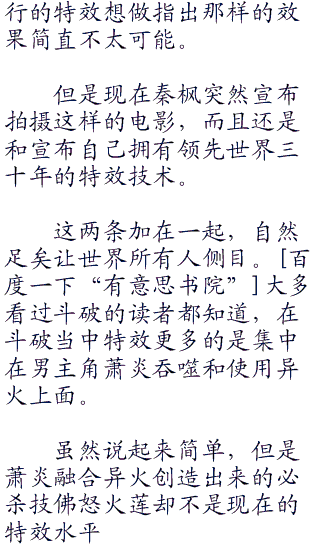 行的特效想做指出那样的效
果简直不太可能。
但是现在秦枫突然宣布
拍摄这样的电影，而且还是
和宣布自己拥有领先世界三
十年的特效技术。
这两条加在一起，自然
足矣让世界所有人侧目。[百
度一下“有意思书院”]大多
看过斗破的读者都知道，在
斗破当中特效更多的是集中
在男主角萧炎吞噬和使用异
火上面。
虽然说起来简单，但是
萧炎融合异火创造出来的必
杀技佛怒火莲却不是现在的
特效水平